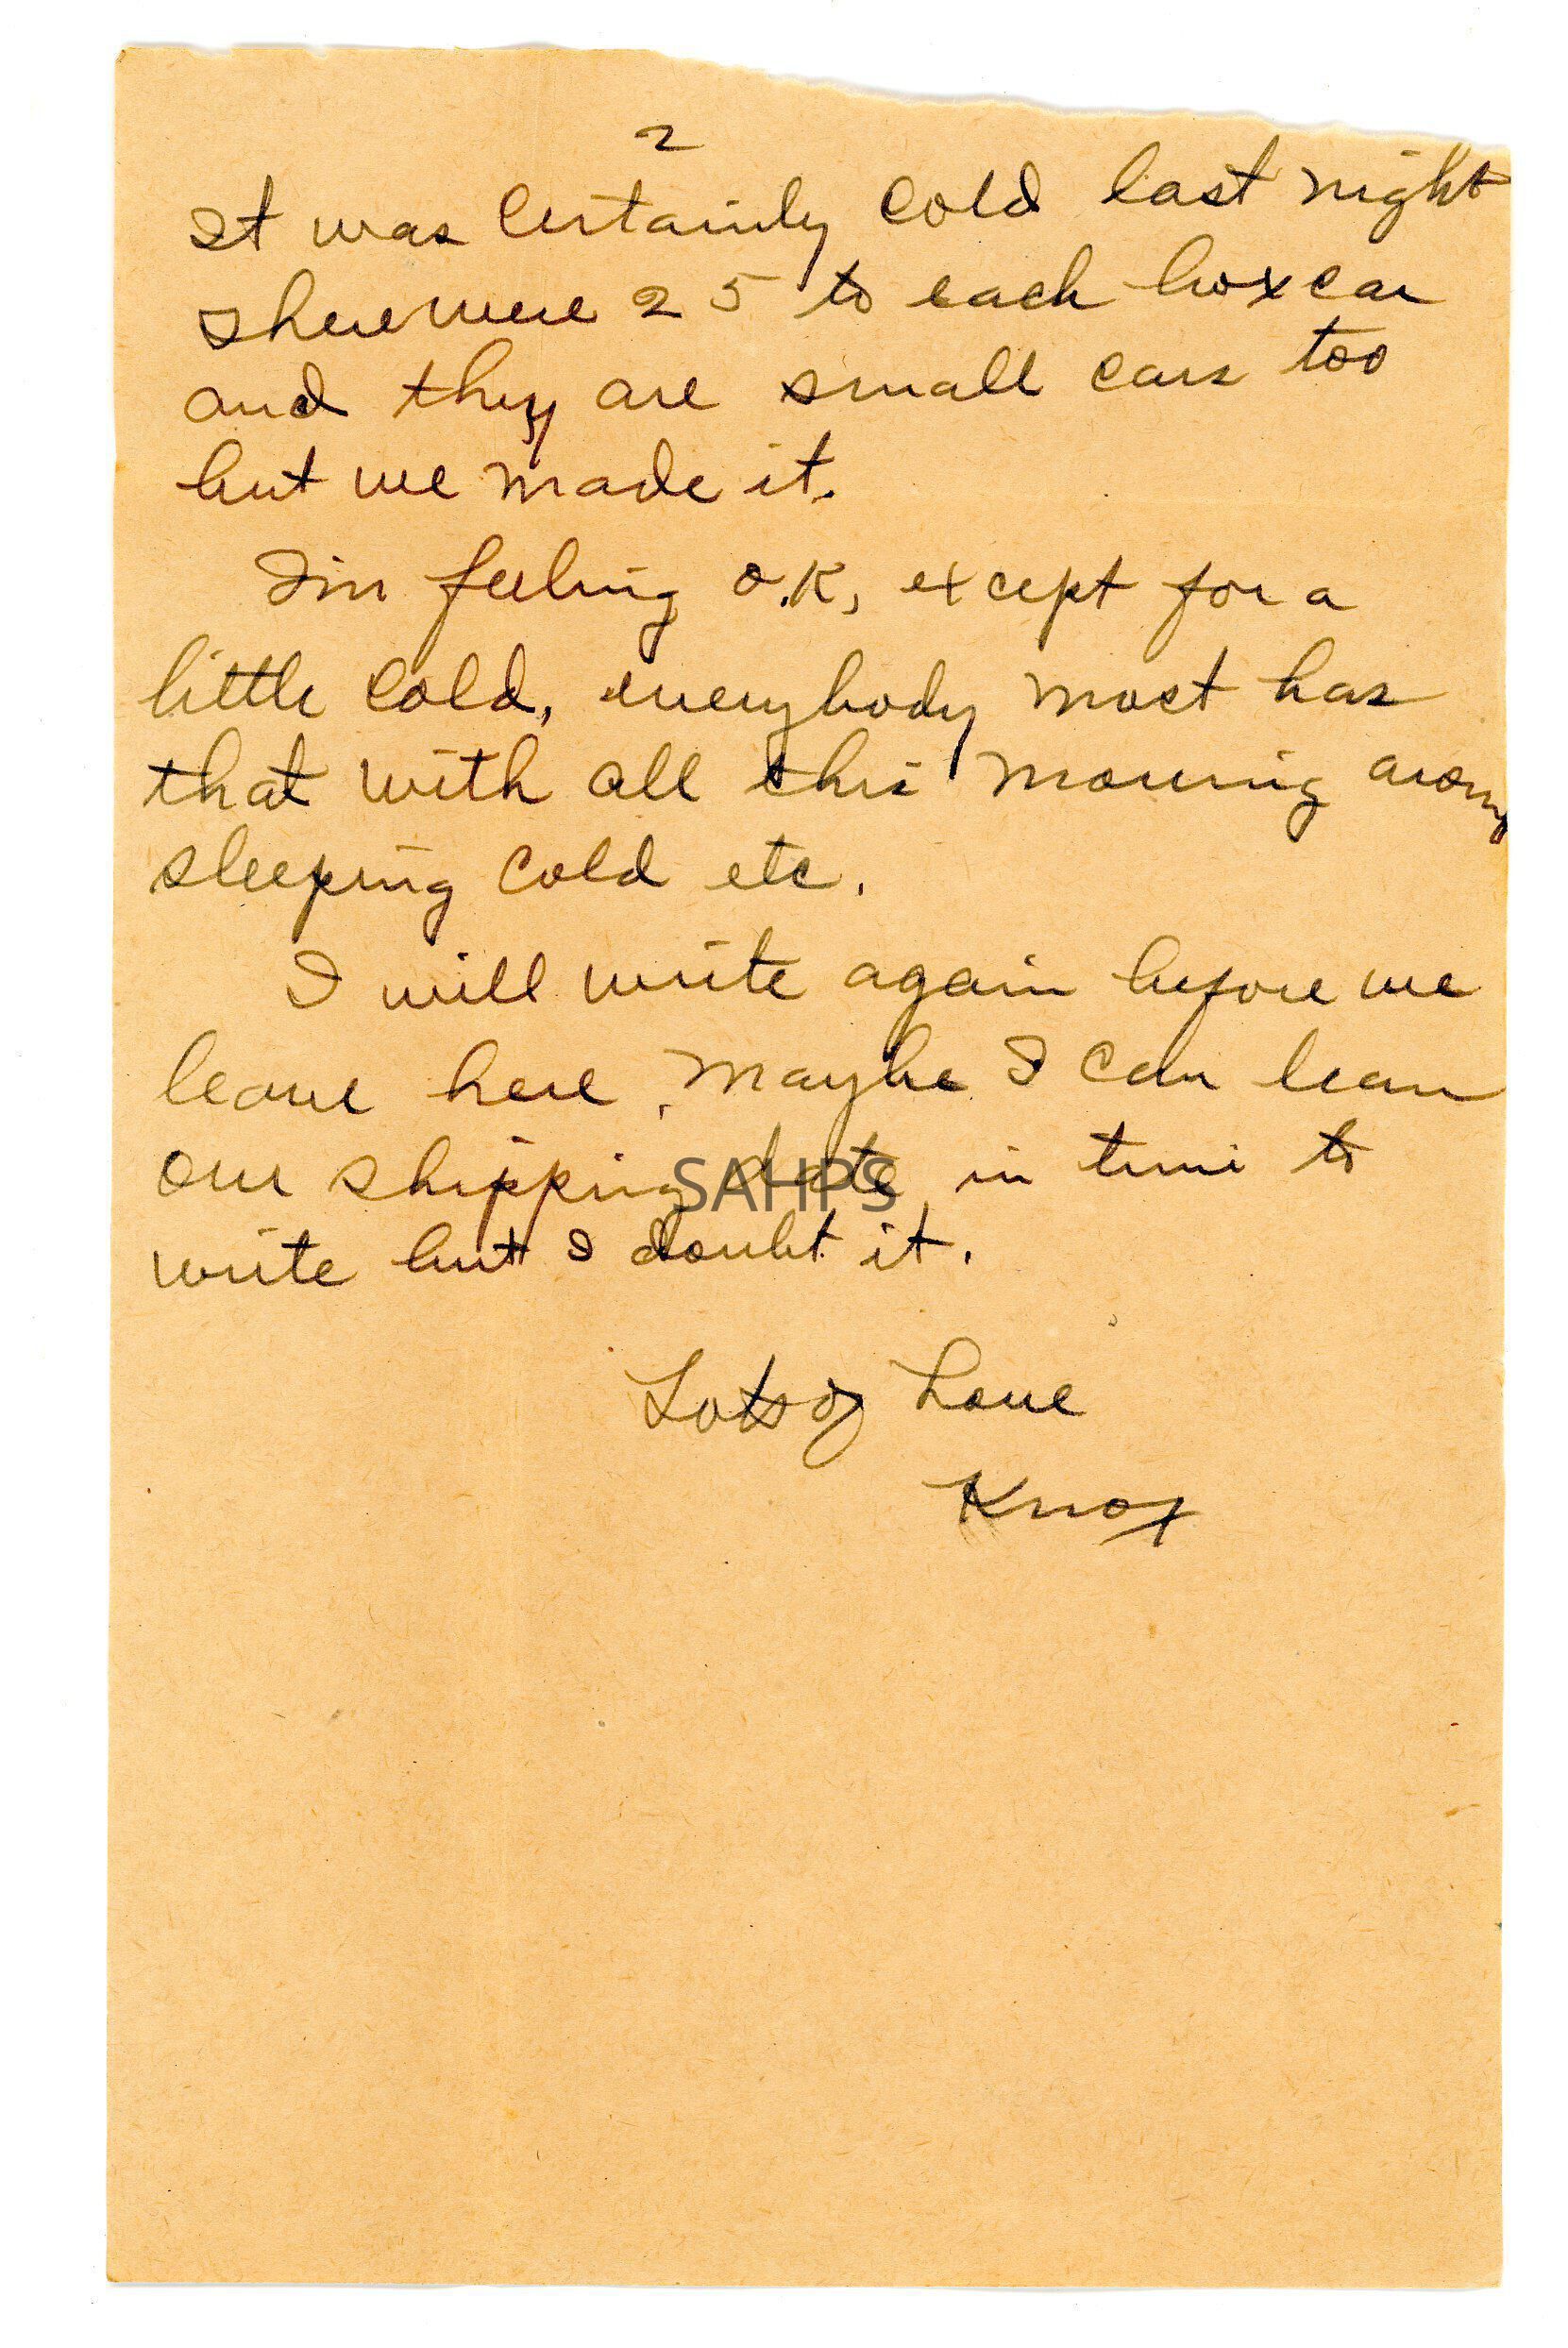 2
It was certainly cold last night
There were 25 to each boxcar
and they are small cars too
but we made it.
I'm feeling O.K, except for a
little cold, everybody most has
that with all this moving around
sleeping cold etc.
I will write again before we
leave here, maybe I can learn
our shipping date in time to
write but I doubt it.
SAHPS
Lots of Love
Knox